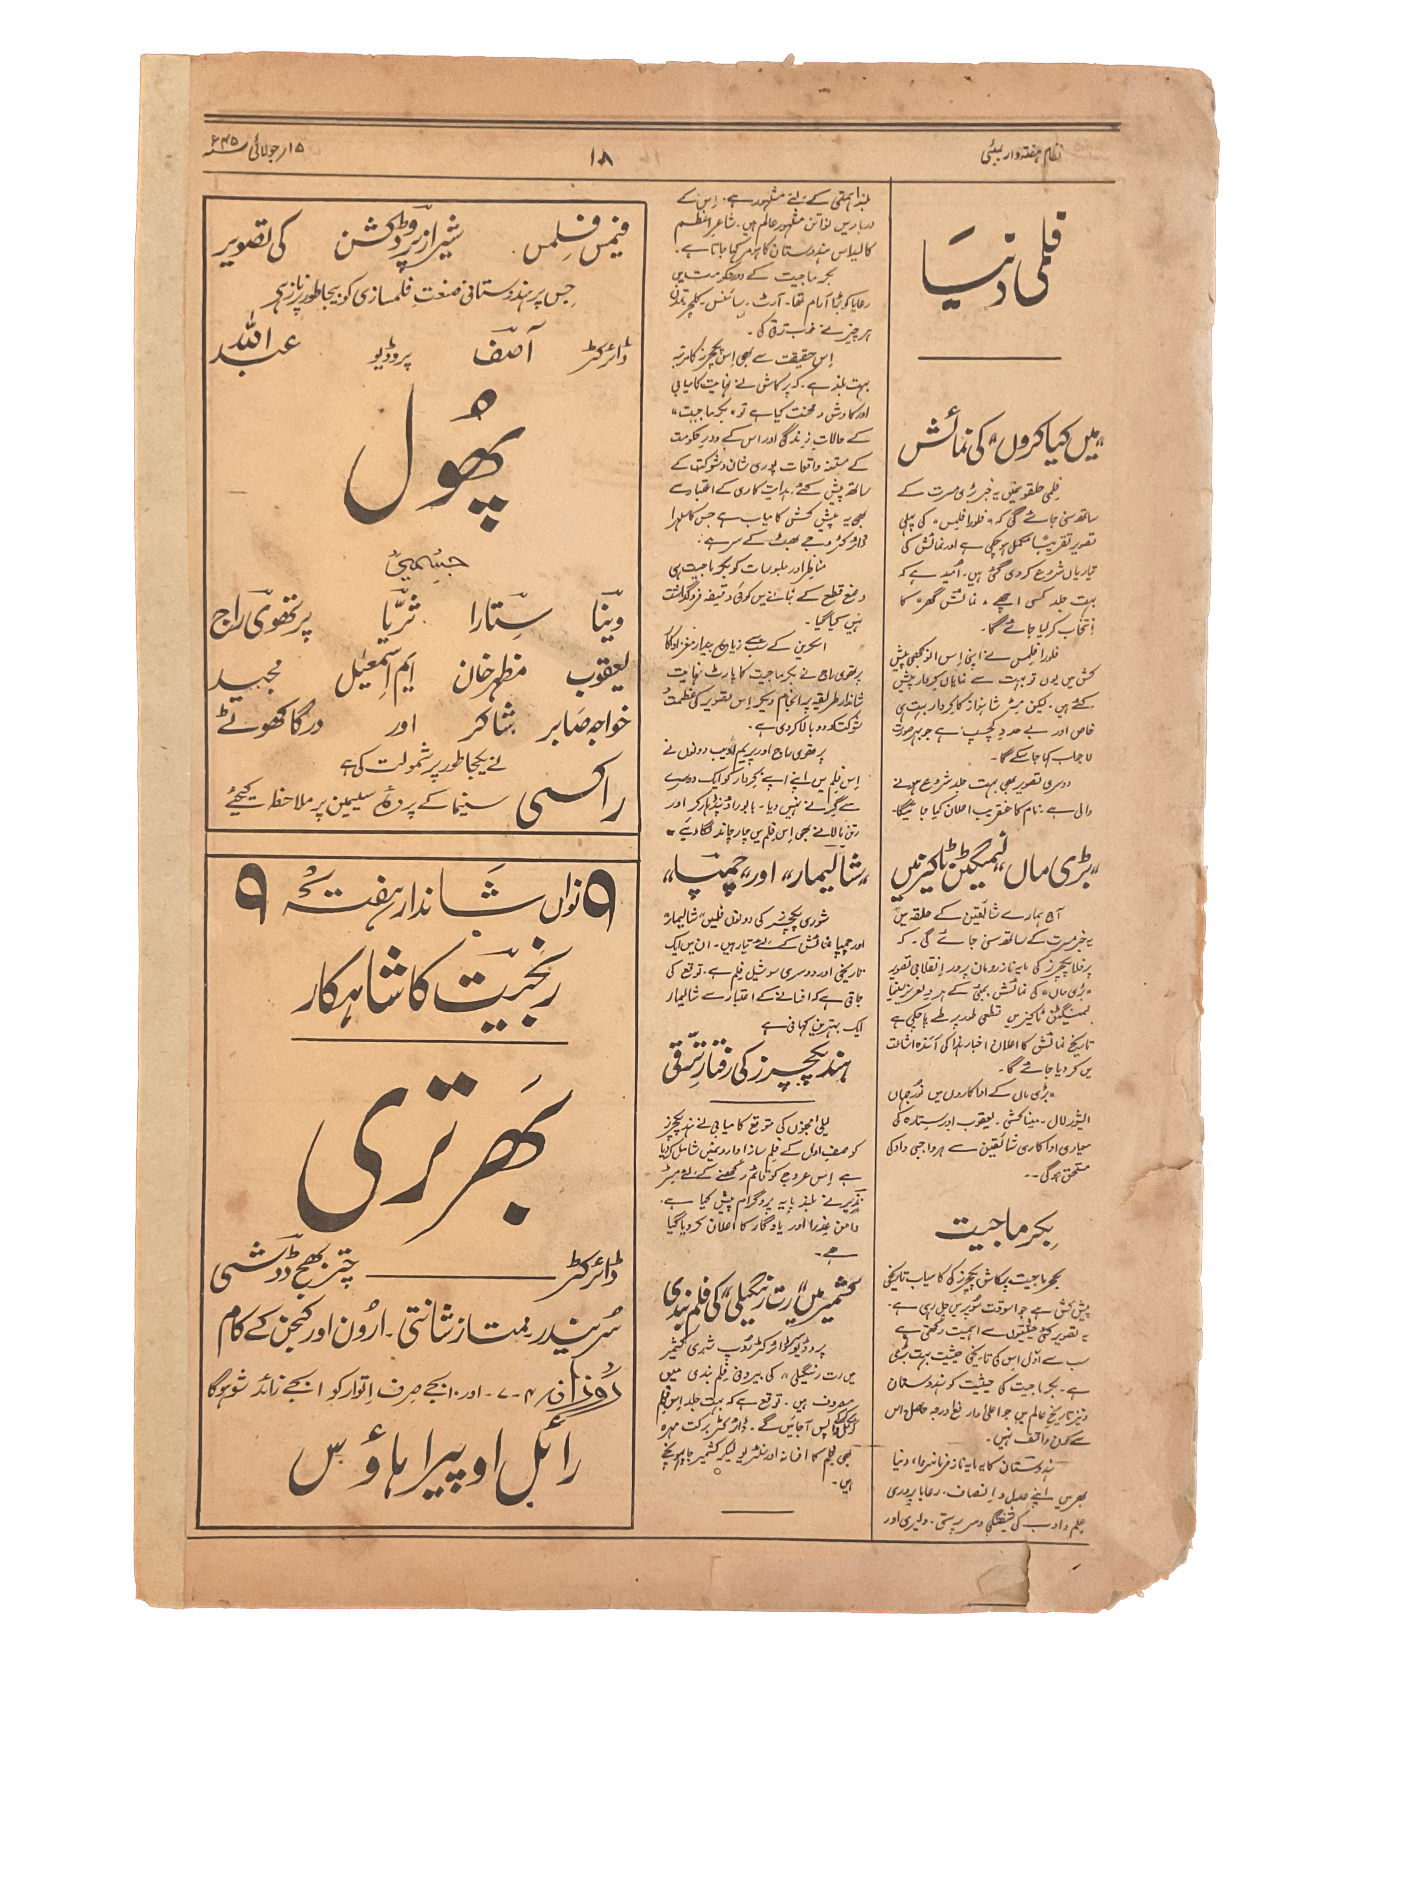 نظام ہفتہ وار بمبئی
۱۸
۱۵؍ جولائی سنہ ۴۵ء
فلمی دنیا
”میں کیا کروں“ کی نمائش
فلمی حلقوں میں یہ خبر بڑی مسرت کے
ساتھ سنی جائے گی کہ ”فلورا فلمس“ کی پہلی
تصویر تقریباً مکمل ہو چکی ہے اور نمائش کی
تیاریاں شروع کر دی گئی ہیں۔ اُمید ہے کہ
بہت جلد کسی اچھے ”نمائش گھر“ کا
انتخاب کر لیا جائے گا۔
فلورا فلمس نے اپنی اِس انوکھی پیش
کش میں یوں تو بہت سے نمایاں کردار پیش
کئے ہیں۔ لیکن مسٹر شاہنواز کا کردار بہت ہی
خاص اور بے حد دلچسپ ہے جو بہر صورت
لا جواب کہا جا سکے گا۔
دوسری تصویر بھی بہت جلد شروع ہونے
والی ہے۔ نام کا عنقریب اعلان کیا جائیگا۔
”بڑی ماں“ لیمنگٹن ٹاکیز میں
آج ہمارے شائقین کے حلقہ میں
یہ خبر مسرت کے ساتھ سنی جائے گی۔ کہ
پرفلا پکچرز کی مایہ ناز رومان پرور اِنقلابی تصویر
”بڑی ماں“ کی نمائش بمبئی کے ہر دلعزیز سینما
لیمنگٹن ٹاکیز میں قطعی طور پر طے پا چکی ہے
تاریخ نمائش کا اعلان اخبار ہذا کی آئندہ اشاعت
میں کر دیا جائے گا۔
”بڑی ماں کے اداکاروں میں نورجہاں
ایشور لال۔ میناکشی۔ یعقوب اور ستارہ کی
معیاری اداکاری شائقین سے ہر واجبی داد کی
مستحق ہوگی۔۔
بِکرماجیت
بکرماجیت پرکاش پکچرز کی کامیاب تاریخی
پیش کش ہے جو اسوقت سُوپر میں چل رہی ہے۔
یہ تصویر کئی حیثیتوں سے اہمیت رکھتی ہے
سب سے اوّل اس کی تاریخی حیثیت بہت بڑھی
ہے۔ بکرماجیت کی حیثیت کو ہندوستان
نیز تاریخ عالم میں جو اعلیٰ و ارفع درجہ حاصل ہے اس
سے کون واقف نہیں۔
ہندوستان کا یہ مایہ ناز فرمانروا، دنیا
بھر میں اپنے عدل و اِنصاف۔ رعایا پروری
علم و ادب کی شیفتگی و سرپرستی۔ دلیری اور
بلند ہمتی کے لئے مشہور ہے۔ اِس کے
دربار میں نو رتن مشہور عالم ہیں۔ شاعر اعظم
کالیداس ہندوستان کا ہومر کہا جاتا ہے۔
بکرماجیت کے دور حکومت میں
رعایا کو بڑا آرام تھا۔ آرٹ۔ سائنس۔ کلچر تمدن
ہر چیز نے خوب ترقی کی۔
اِس حقیقت سے بھی اِس پکچرز کا مرتبہ
بہت بلند ہے۔ کہ پرکاش نے نہایت کامیابی
اور کاوش و محنت کیا ہے تو ”بکرماجیت“
کے حالات زندگی اور اس کے دور حکومت
کے مستند واقعات پوری شان و شوکت کے
ساتھ پیش کئے۔ ہدایت کاری کے اعتبار سے
بھی یہ پیش کش کامیاب ہے جس کا سہرا
ڈائرکٹر وجے بھٹ کے سر ہے۔
مناظر اور ملبوسات کو بکرماجیت ہی
وضع قطع کے بنانے میں کوئی دقیقہ فروگذاشت
نہیں کیا گیا۔
اسکرین کے سب سے زیادہ بیدار مغز اداکار
پرتھوی راج نے بکرماجیت کا پارٹ نہایت
شاندار طریقہ پر انجام دیکر اِس تصویر کی عظمت
شوکت کو دوبالا کر دی ہے۔
پرتھوی راج اور پریم ادیب دونوں نے
اِس فلم میں اپنے اپنے کردار کو ایک دوسرے
سے گرنے نہیں دیا۔ بابو راؤ پنڈھارکر اور
رتن مالا نے بھی اِس فلم میں چار چاند لگا دیئے۔
”شالیمار“ اور ”چمپا“
شوری پکچرز کی دونوں فلمیں ”شالیمار“
اور چمپا نمائش کے لئے تیار ہیں۔ ان میں ایک
تاریخی اور دوسری سوشیل فلم ہے۔ توقع کی
جاتی ہے کہ افسانے کے اعتبار سے شالیمار
ایک بہترین کہانی ہے
ہند پکچرز کی رفتار ترقی
لیلیٰ مجنوں کی متوقع کامیابی نے ہند پکچرز
کو صف اول کے فلم ساز اداروں میں شامل کر دیا
ہے اِس عروج کو قائم رکھنے کے لئے مسٹر
نذیر نے بلند پایہ پروگرام پیش کیا ہے۔
وامق عذرا اور یادگار کا اعلان کر دیا گیا
ہے۔
کشمیر میں ”رت رنگیلی“ کی فلم بندی
پروڈیوسر ڈائرکٹر رُوپ شوری کشمیر
میں رت رنگیلی“ کی بیرونی فلم بندی میں
مصروف ہیں۔ توقع ہے کہ بہت جلد اِس فلم
کو لیکر واپس آجائیں گے۔ ڈائرکٹر برکت مہرہ
بھی فلم کا افسانہ اور منظر یہ لیکر کشمیر جا پہونچے
ہیں۔
فیمس فلمس شیراز پروڈکشن کی تصویر
جس پر ہندوستانی صنعتِ فلمسازی کو بیجا طور پر ناز ہے
ڈائرکٹر آصف پروڈیو عبداللہ
پھُول
جسمیں
وینا سِتارا ثریّا پرتھوی راج
یعقوب مظہر خان ایم اسمٰعیل مجید
خواجہ صابر شاکر اور درگا کھوٹے
نے یکجا طور پر شمولت کی ہے
راکسی سینما کے پردۂ سیمیں پر ملاحظہ کیجئے
۹ نواں شاندار ہفتہ ۹
رنجیت کا شاہکار
بھَرتری
ڈائرکٹر چتر بھج دوشی
سُریندر۔ ممتاز شانتی۔ ارُون اور کجن کے کام
روزانہ ۴-۷- اور ۱۰ بجے صرف اِتوار کو ۱ بجے زائد شو ہوگا
رائل اوپیرا ہاؤس